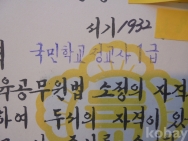 서기 1932
국민학교 정교사 1급
유공무원법 소정의 자격
하여 두 의 자격이 있
kohay